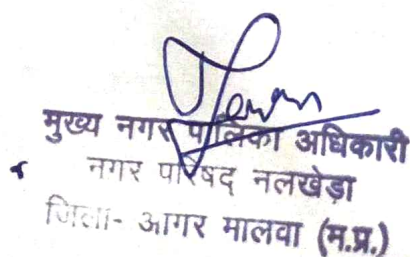 मुख्य नगर पालिका अधिकारी
नगर परिषद नलखेड़ा
जिला- आगर मालवा (म.प्र.)